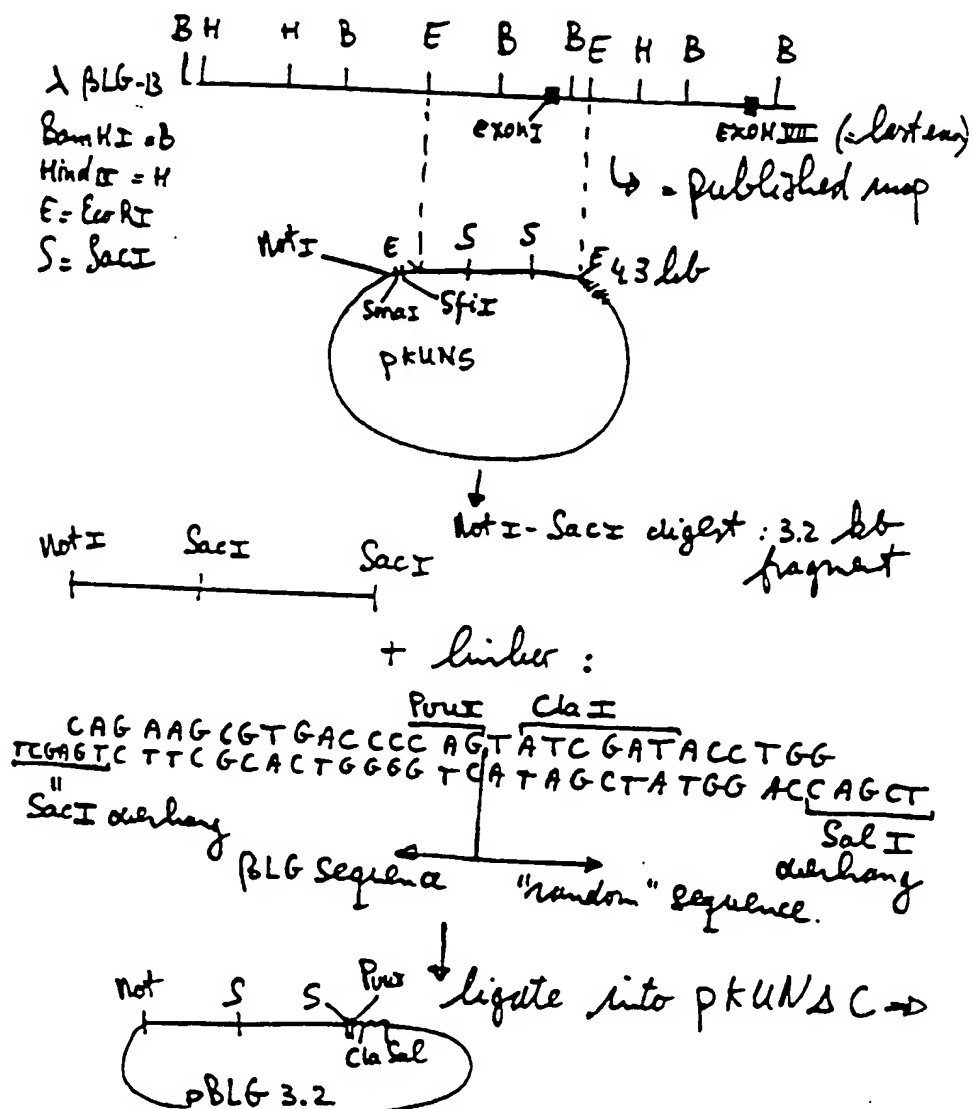 B H H B E B B E H B B
λ βLG-13
BamHI = B
HindIII = H
E = EcoRI
S = SacI
exonI
EXON VII (= last exon)
↳ = published map
NotI E S S E 4.3 kb
SmaI SfiI
pKUN5
NotI-SacI digest : 3.2 kb
fragment
NotI SacI SacI
+ linker :
PvuI ClaI
CAG AAG CGT GACCCC AGTATCGATACCTGG
TCGAGTC TTCGCACTGGGG TCATAGCTATGG ACCCAGCT
"
SacI overhang
SalI
overhang
βLG sequence
"random" sequence.
ligate into pKUNΔC ⇒
Not S S PvuI
Cla Sal
pBLG 3.2